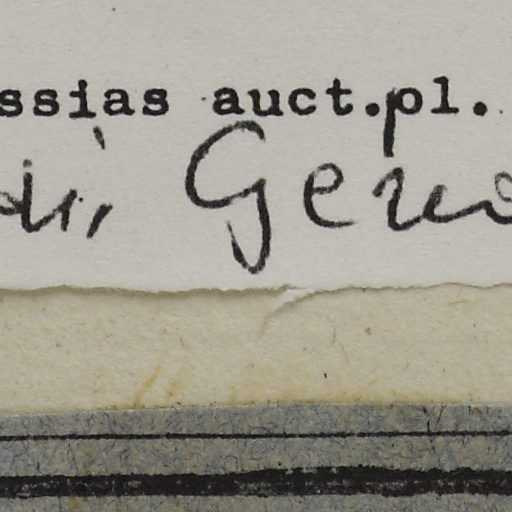 ssias auct.pl.
di, Geno